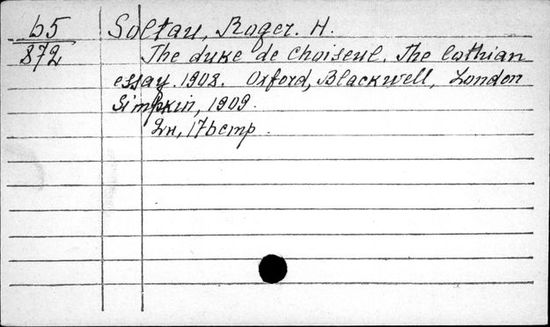 b5 Soltau, Roger. H.
872 The duke de Choiseul. The lothian
essay. 1908. Oxford, Blackwell, London
Simpkin, 1909.
2н, 176 стр.